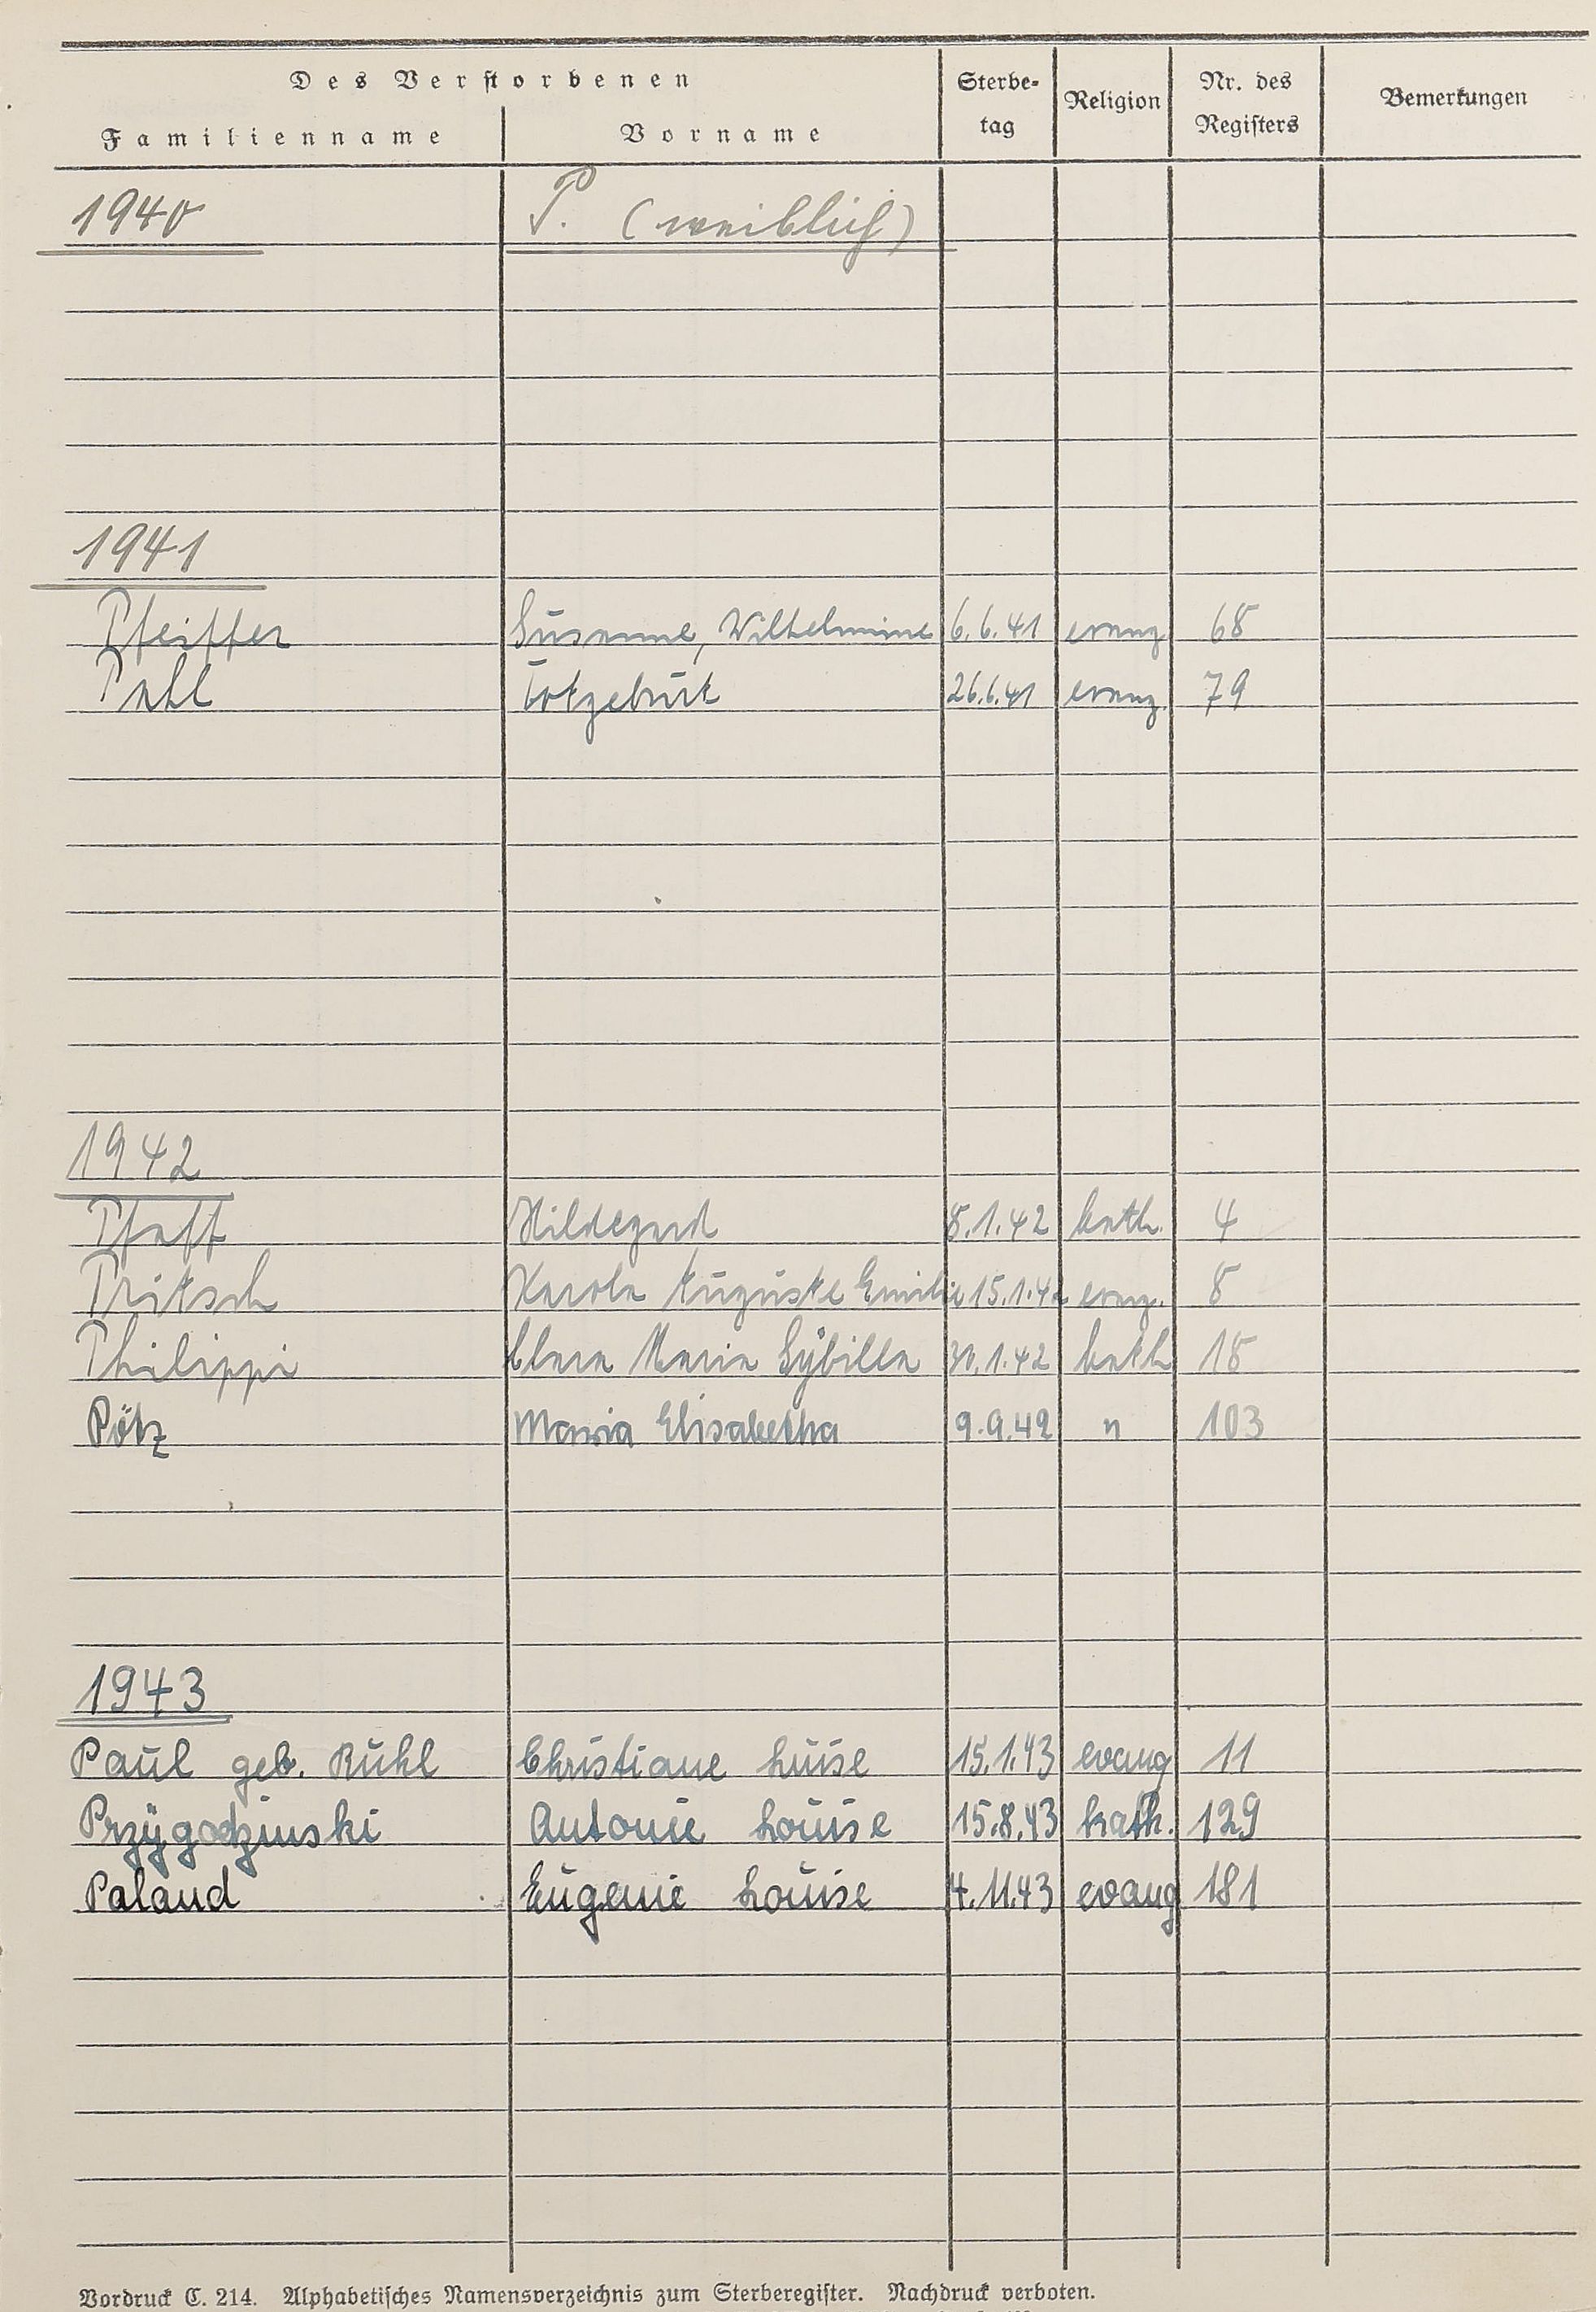 Des Verstorbenen
Familienname Vorname Sterbe-tag Religion Nr. des Registers Bemerkungen
1940 P. (weiblich)
1941
Pfeiffer Susanne, Wilhelmine 6.6.41 evang 68
Pahl Totgeburt 26.6.41 evang. 79
1942
Pfaff Hildegard 8.1.42 kath. 4
Pritsch Karola Auguste Emilie 15.1.42 evang. 8
Philippi Clara Maria Sybilla 30.1.42 kath 18
Pötz Maria Elisabetha 9.9.42 " 103
1943
Paul geb. Rühl Christiane Luise 15.1.43 evang 11
Przygodzinski Antonie Louise 15.8.43 kath. 129
Paland Eugenie Louise 4.11.43 evang 181
Vordruck C. 214. Alphabetisches Namensverzeichnis zum Sterberegister. Nachdruck verboten.